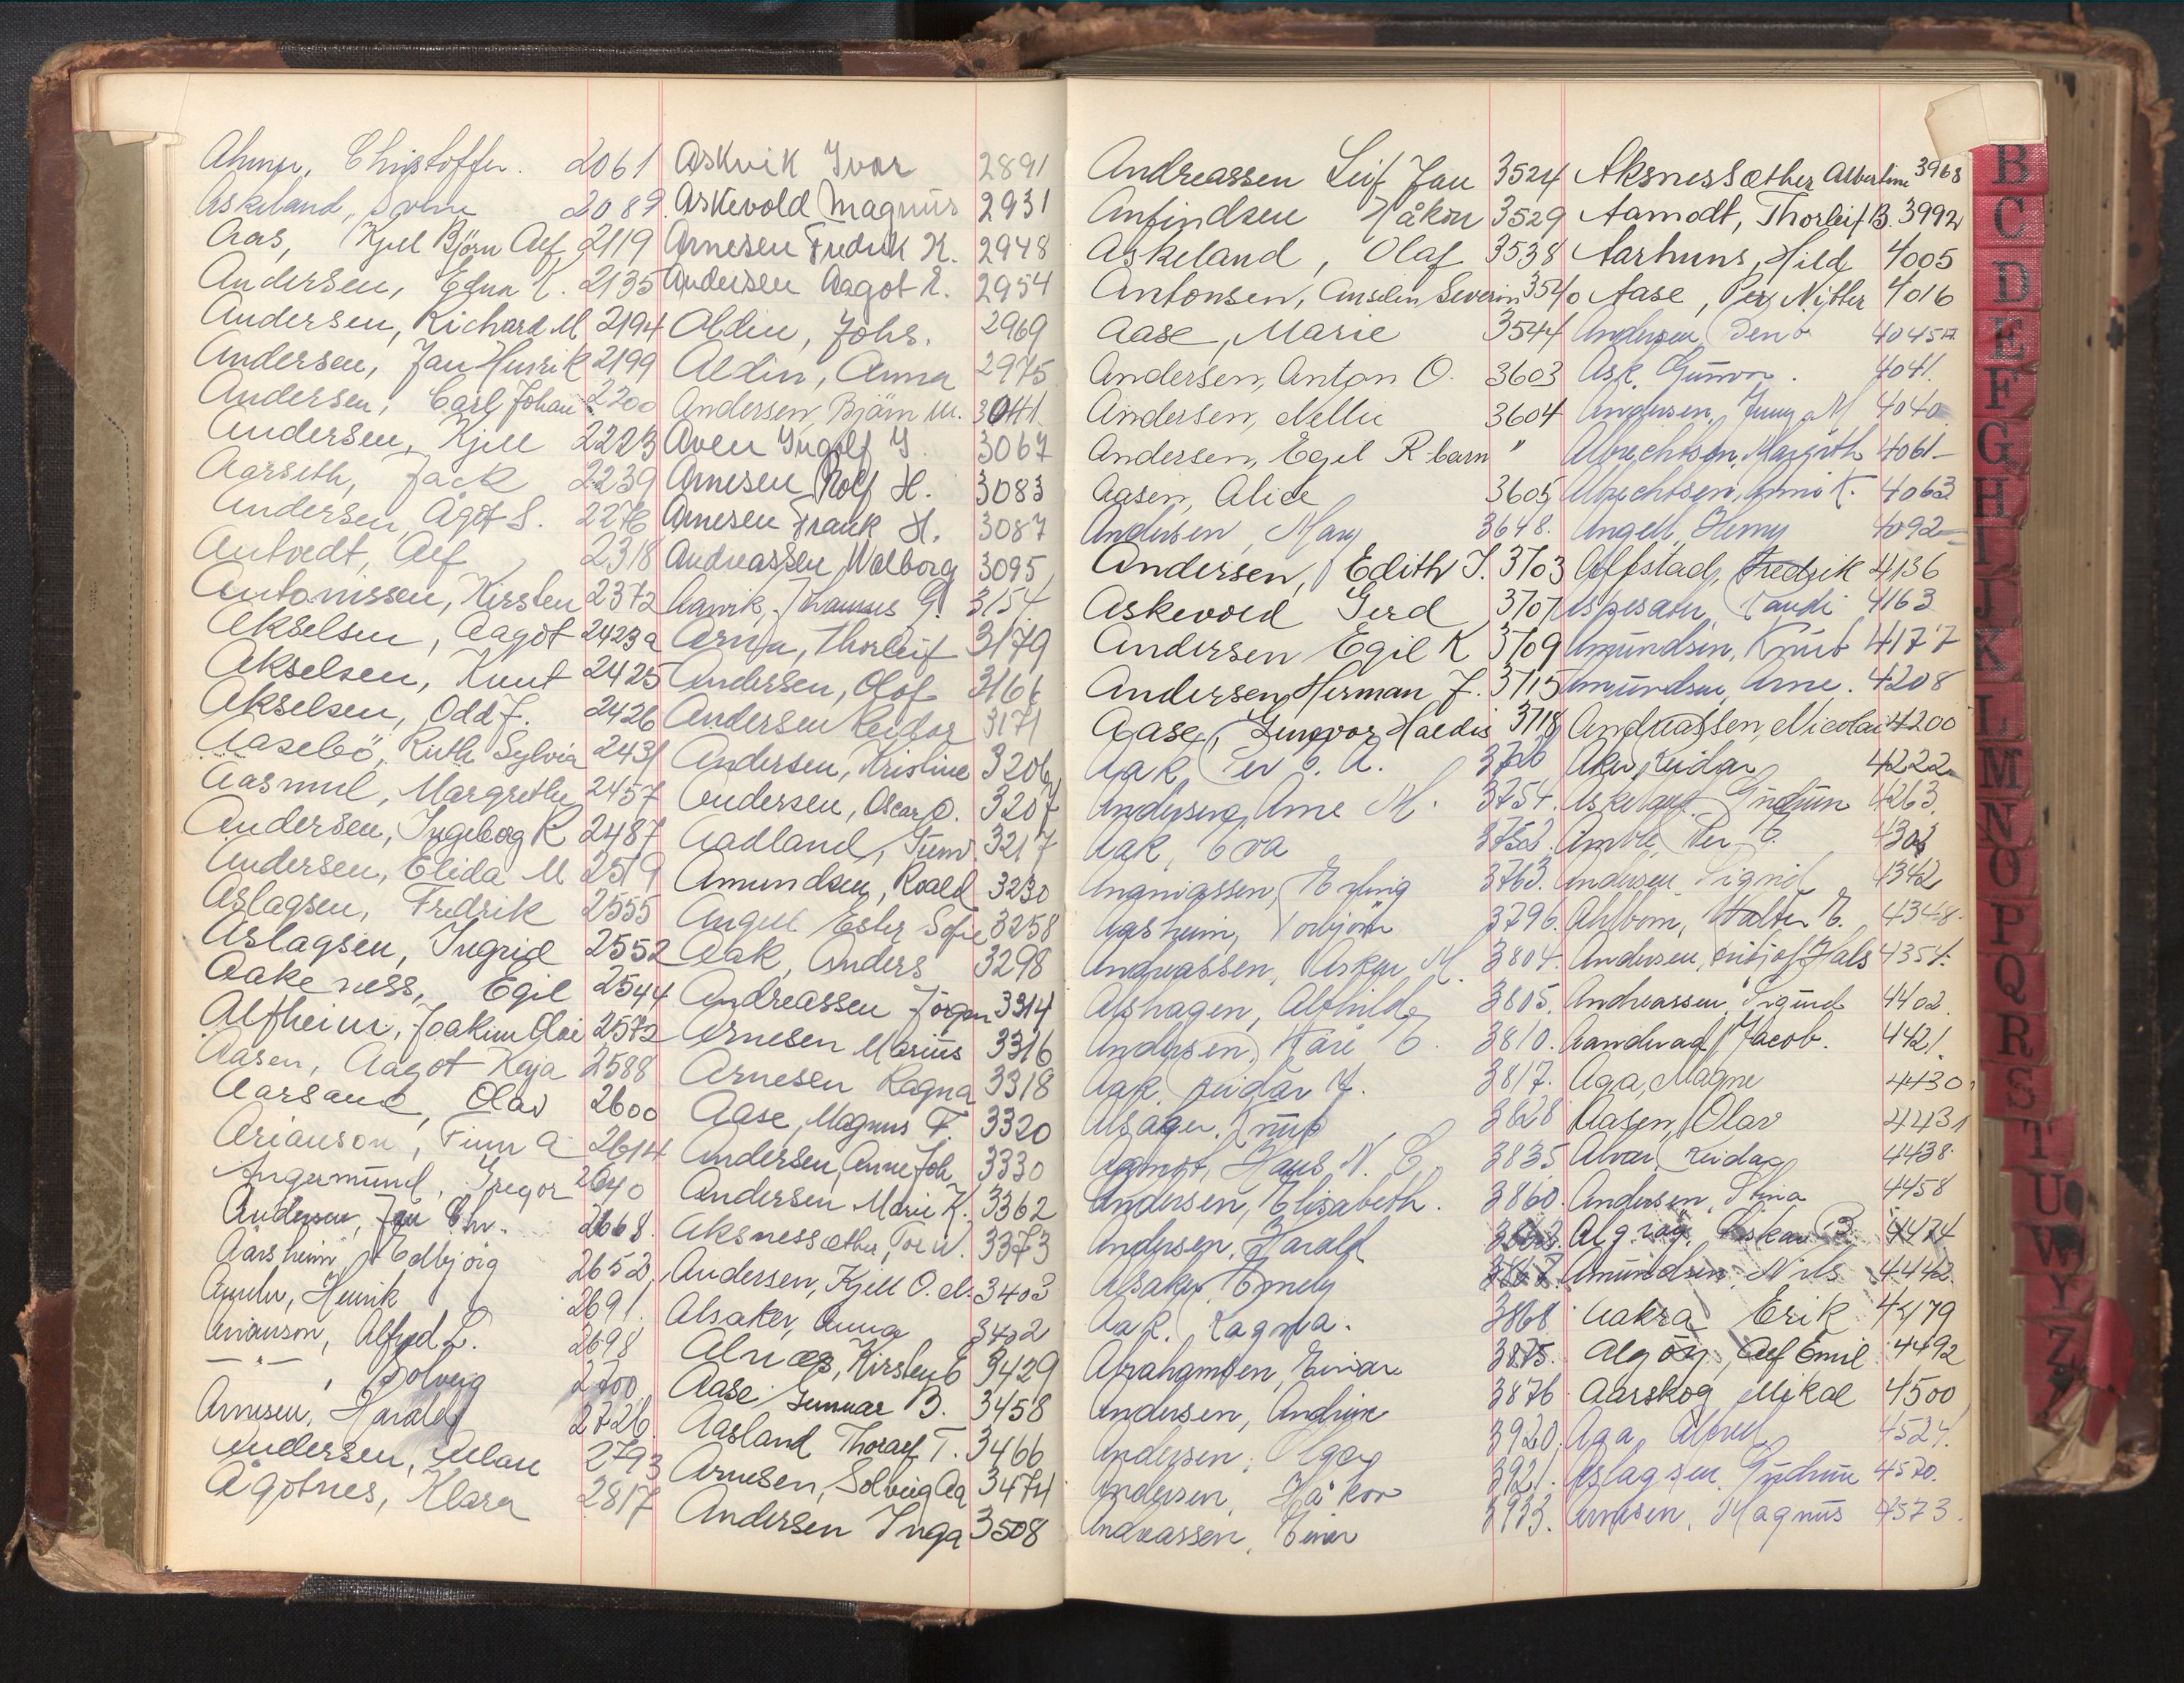 Christoffer. 2061
Askeland, 2089
Aas, Kjell Björn Alf 2119
Andersen, Edna K. 2135
Andersen, Richard M 2194
Andersen, Jan Henrik 2199
Andersen, Carl Johan 2200
Andersen, Kjell 2223
Aarseth, Jack 2239
Andersen, Ågot S. 2276
Antvedt, Alf 2318
Antonissen, Kirsten 2372
Akselsen, Aagot 2423a
Akselsen, Knut 2425
Akselsen, Odd J. 2426
Aasebö, Ruth Sylvia 2431
Aasmul, Margrethe 2457
Andersen, Ingeborg K 2487
Andersen, Elida M 2519
Aslagsen, Fredrik 2555
Aslagsen, Ingrid 2552
Aakeness, Egil 2544
Alfheim, Joakim Olai 2572
Aasen, Aagot Kaja 2588
Aarsand, Olav 2600
Arianson, Finn A 2614
Angermund, Gregor 2640
Andersen, Jan Chr. 2668
Aarsheim, Edbjörg 2652
Henrik 2691
Arianson, Alfred L. 2698
— " — , Solveig 2700
Arnesen, Harald 2726
Andersen, 2793
Ågotnes, Klara 2817
Askvik Ivar 2891
Askevold Magnus 2931
Arnesen Fredrik K. 2948
Andersen Aagot E. 2954
Aldin, Johs. 2969
Aldin, Anna 2975
Andersen, Bjärn M. 3041
Aven Ingolf J. 3067
Arnesen Rolf H. 3083
Arnesen Frank H. 3087
Andreassen, Walborg 3095
Johannes G. 3154
Arna, Thorleif 3179
Andersen, Olof 3166
Andersen Reidar 3171
Andersen, Kristine 3206
Andersen, Oscar O. 3207
Aadland, Gunv. 3217
Amundsen, Roald 3230
Angell Ester Sofie 3258
Aak, Anders 3298
Andreassen Jörgen 3314
Arnesen Marius 3316
Arnesen Ragna 3318
Aase, Magnus F. 3320
Andersen, Anne Joh. 3330
Andersen Marie K. 3362
Aksnessæther, Tor W. 3373
Andersen, Kjell O. A. 3403
Alsaker, Anna 3402
Alnæs, Kirsten E 3429
Aase Gunnar B. 3458
Aasland Thoralf T. 3466
Arnesen, Solveig Aa 3474
Andersen Inga 3508
Andreassen Leif Jan 3524
Anfindsen Håkon 3529
Askeland, Olaf 3538
Antonsen, Anselm Severin 3540
Aase, Marie 3544
Andersen, Anton O. 3603
Andersen, Nellie 3604
Andersen, Egil R. barn "
Aasen, Alice 3605
Andersen, Mary 3648.
Andersen, Edith J. 3703
Askevold Gerd 3707
Andersen Egil K 3709
Andersen, Herman J. 3715
Aase, Gunvor Haldis 3718
Aak, Per C. A. 3726
Andersen, Arne M. 3754.
Aak, Eva 3752.
Ananiassen, Erling 3763.
Aasheim, Torbjörn 3796.
Andreassen, Asker M. 3804.
Alshagen, Alfhild 3805.
Andersen, Kåre E. 3810.
Aak, Reidar J. 3817.
Alsager, Knut 3828
Aamot, Hans N. C. 3835
Andersen, Elisabeth. 3860.
Andersen, Harald
Alsaker, Emely 3867.
Aak, Ragna. 3868
Abrahamsen, Einar 3875.
Andersen, Andrine 3876
Andersen, Olga 3920
Andersen, Håkon 3921.
Andreassen, Einar 3933.
Aksnessæther Albertine 3968
Aamodt, Thorleif B. 3992
Aarhuns, Hild 4005
Aase, Per Nitter 4016
Andersen, 4045a
Ask, Gunvor. 4041.
Andersen, Jenny M 4040
Albrechtsen, Margith 4061-
Albrechtsen, Anni K. 4063
Angell, Henny 4092-
Alfstad, Fredrik 4136
Randi 4163
Amundsen, Knut 4177
Amundsen, Arne. 4208
Andreassen, Nicolai 4200
Aker, Reidar 4222
Askeland Gudrun 4263.
Amble, Per C. 4303
Andersen Sigrid 4342
Ahlbom, Walter E. 4348.
Andersen, Fritjof Hals 4354.
Andreassen, Sigurd 4402.
Jacob. 4421.
Aga, Magne 4430.
Aasen, Olav 4431
Alvær, Reidar 4438.
Andersen, Stina 4458
Algröy, Oskar B. 4474
Amundsen, Nils 4442.
Aakra Erik 4479
Algöy, Alf Emil 4492
Aarskog Mikal 4500
Aga, 4524.
Aslagsen, Gudrun 4570.
Arnesen, Magnus 4573.
B
C
D
E
F
G
H
I
J
K
L
M
N
O
P
Q
R
S
T
U
W
Y
Z